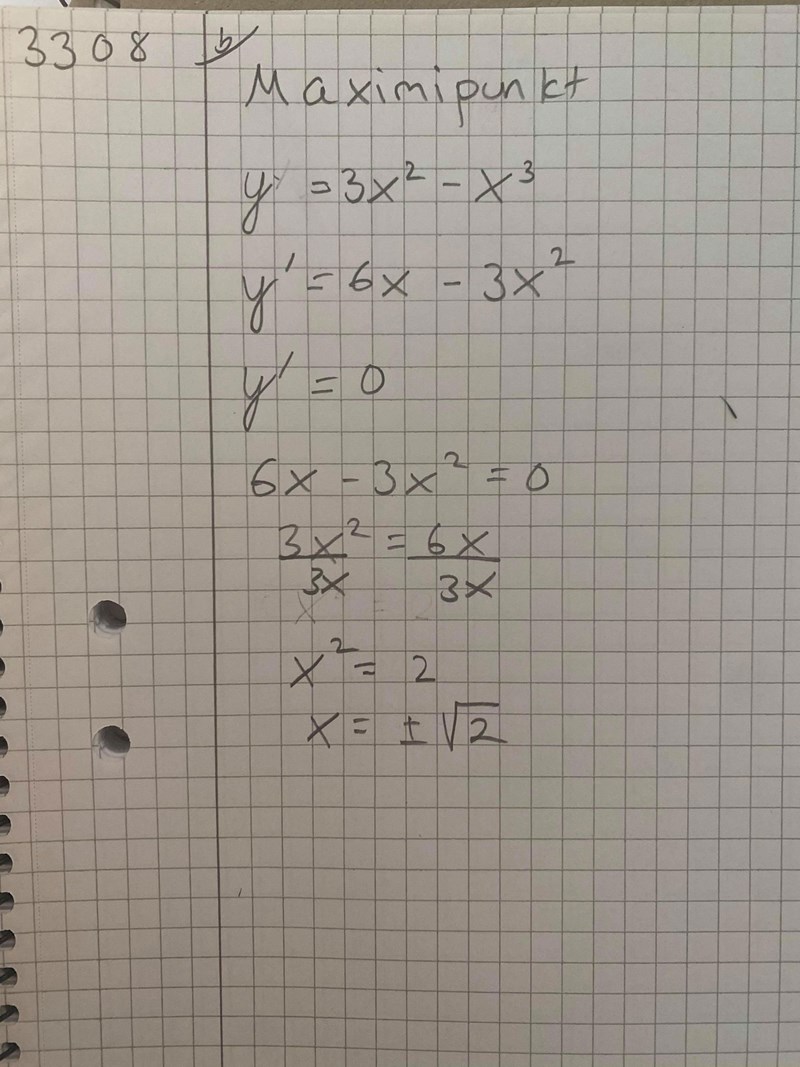 3308 b)
Maximipunkt
y = 3x² - x³
y' = 6x - 3x²
y' = 0
6x - 3x² = 0
3x²/3x = 6x/3x
x² = 2
x = ±√2